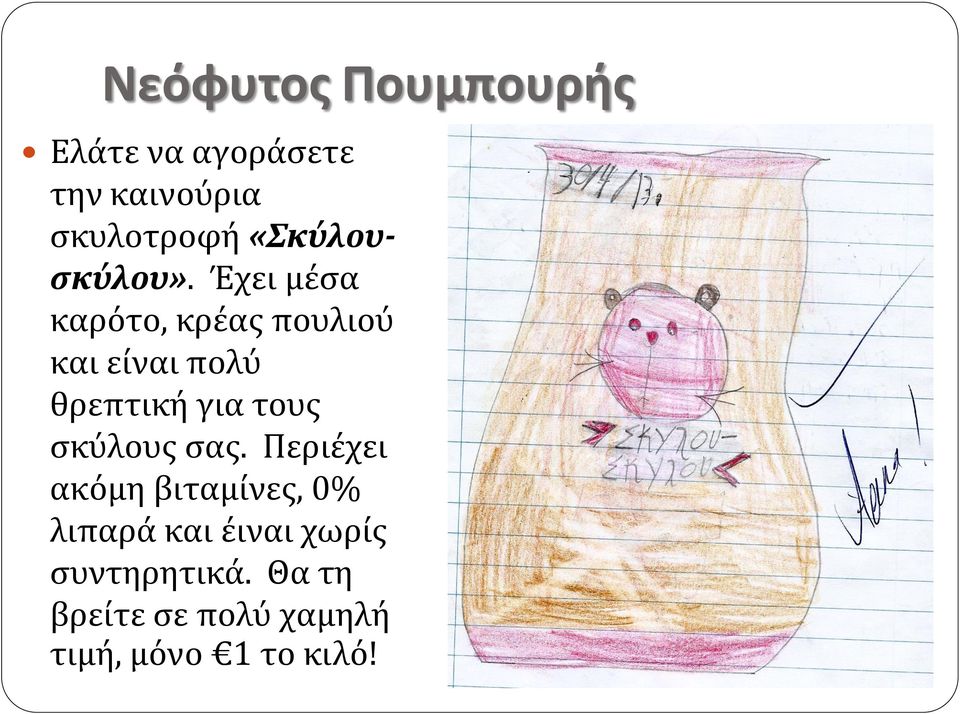 Νεόφυτος Πουμπουρής
• Ελάτε να αγοράσετε
την καινούρια
σκυλοτροφή «Σκύλου-
σκύλου». Έχει μέσα
καρότο, κρέας πουλιού
και είναι πολύ
θρεπτική για τους
σκύλους σας. Περιέχει
ακόμη βιταμίνες, 0%
λιπαρά και έιναι χωρίς
συντηρητικά. Θα τη
βρείτε σε πολύ χαμηλή
τιμή, μόνο €1 το κιλό!
30/4/13.
Σκυλου-
Σκυλου